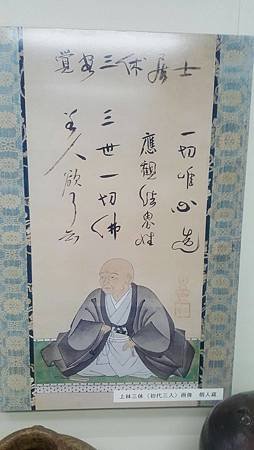 覚三休居士
若人欲了知
三世一切佛
應観法界性
一切唯心造
上林三休（初代三入）画像　個人蔵